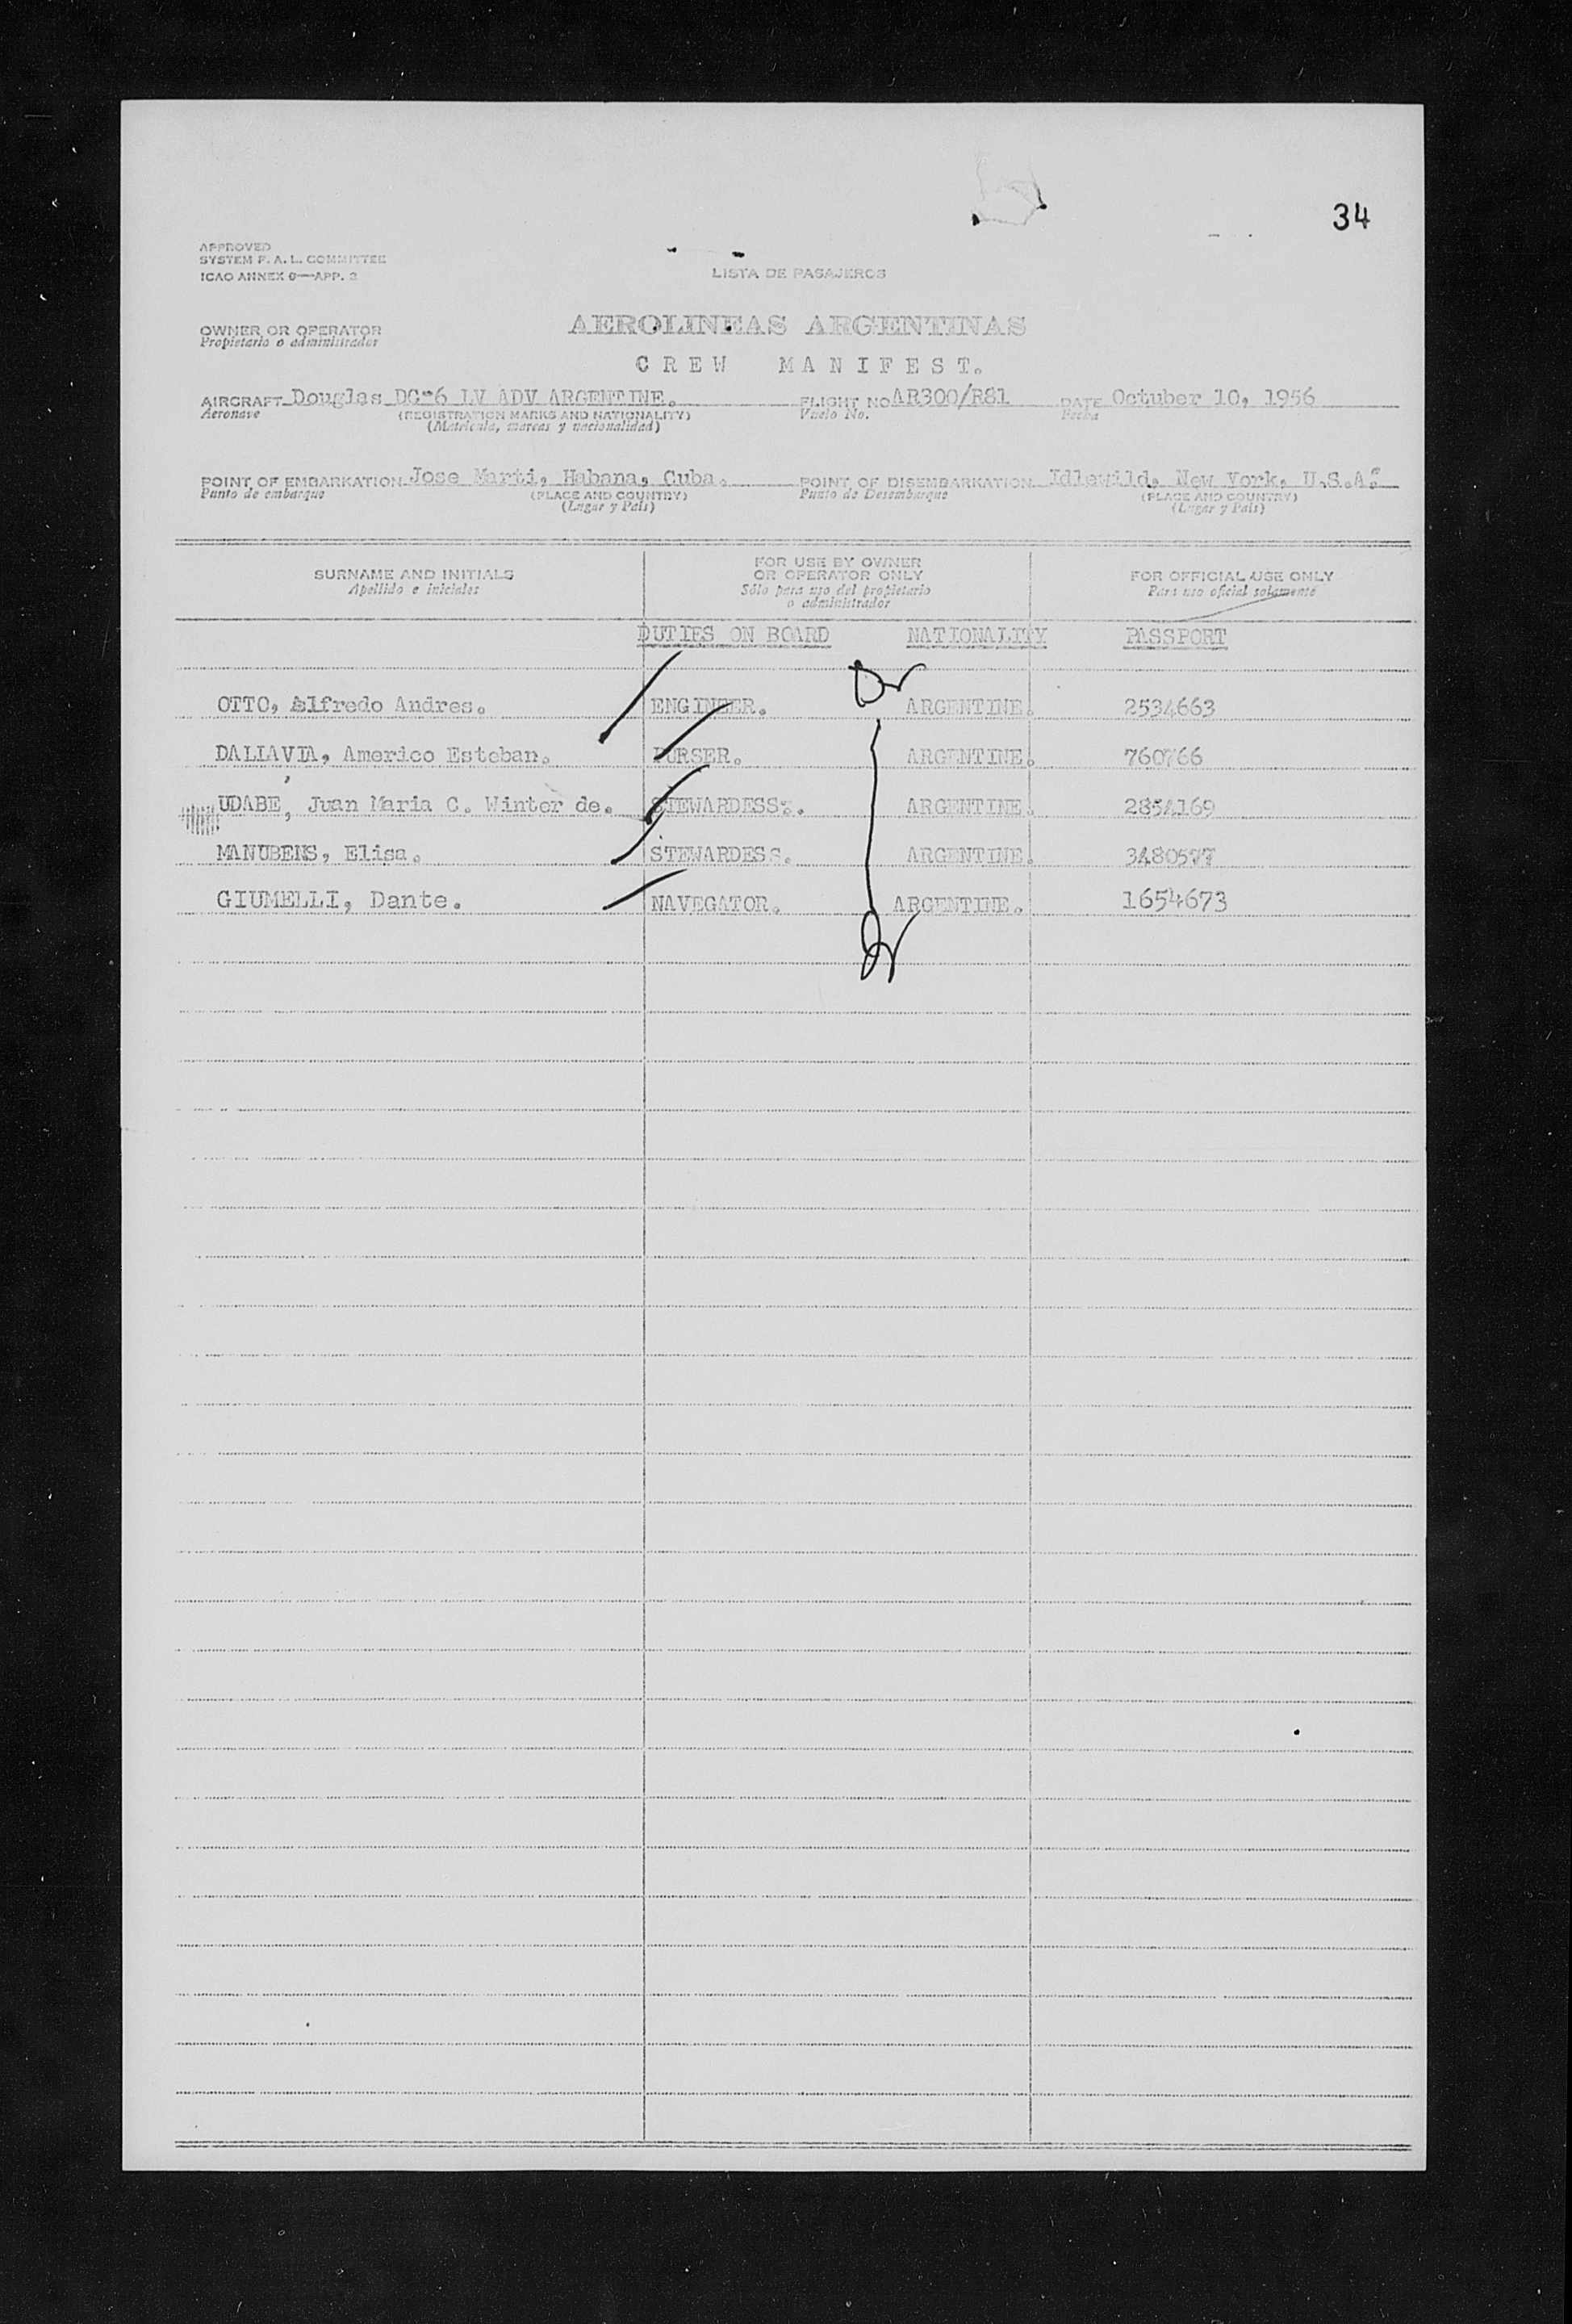 34
APPROVED
SYSTEM F. A. L. COMMITTEE
ICAO ANNEX 9—APP. 3
LISTA DE PASAJEROS
OWNER OR OPERATOR
Propietario o administrador
AEROLINEAS ARGENTINAS
CREW MANIFEST.
AIRCRAFT Douglas DC-6 LV ADV ARGENTINE. FLIGHT NO AR300/R81 DATE Octuber 10, 1956
Aeronave (REGISTRATION MARKS AND NATIONALITY) Vuelo No. Fecha
(Matricula, marcas y nacionalidad)
POINT OF EMBARKATION Jose Marti, Habana, Cuba. POINT OF DISEMBARKATION Idlewild, New York, U.S.A.
Punto de embarque (PLACE AND COUNTRY) Punto de Desembarque (PLACE AND COUNTRY)
(Lugar y País) (Lugar y País)
SURNAME AND INITIALS
Apellido e iniciales
FOR USE BY OWNER
OR OPERATOR ONLY
Sólo para uso del propietario
o administrador
FOR OFFICIAL USE ONLY
Para uso oficial solamente
DUTIES ON BOARD NATIONALITY PASSPORT
OTTO, Alfredo Andres. ENGINEER. ARGENTINE. 2534663
DALLAVIA, Americo Esteban. PURSER. ARGENTINE. 760766
UDABE, Juan Maria C. Winter de. STEWARDESS. ARGENTINE. 2854169
MANUBENS, Elisa. STEWARDESS. ARGENTINE. 3480577
GIUMELLI, Dante. NAVEGATOR. ARGENTINE. 1654673